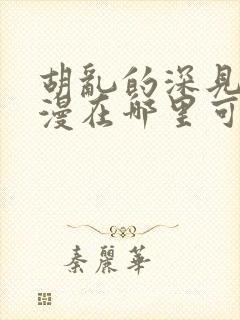 胡亂的深見
漫在哪里可
秦麗華